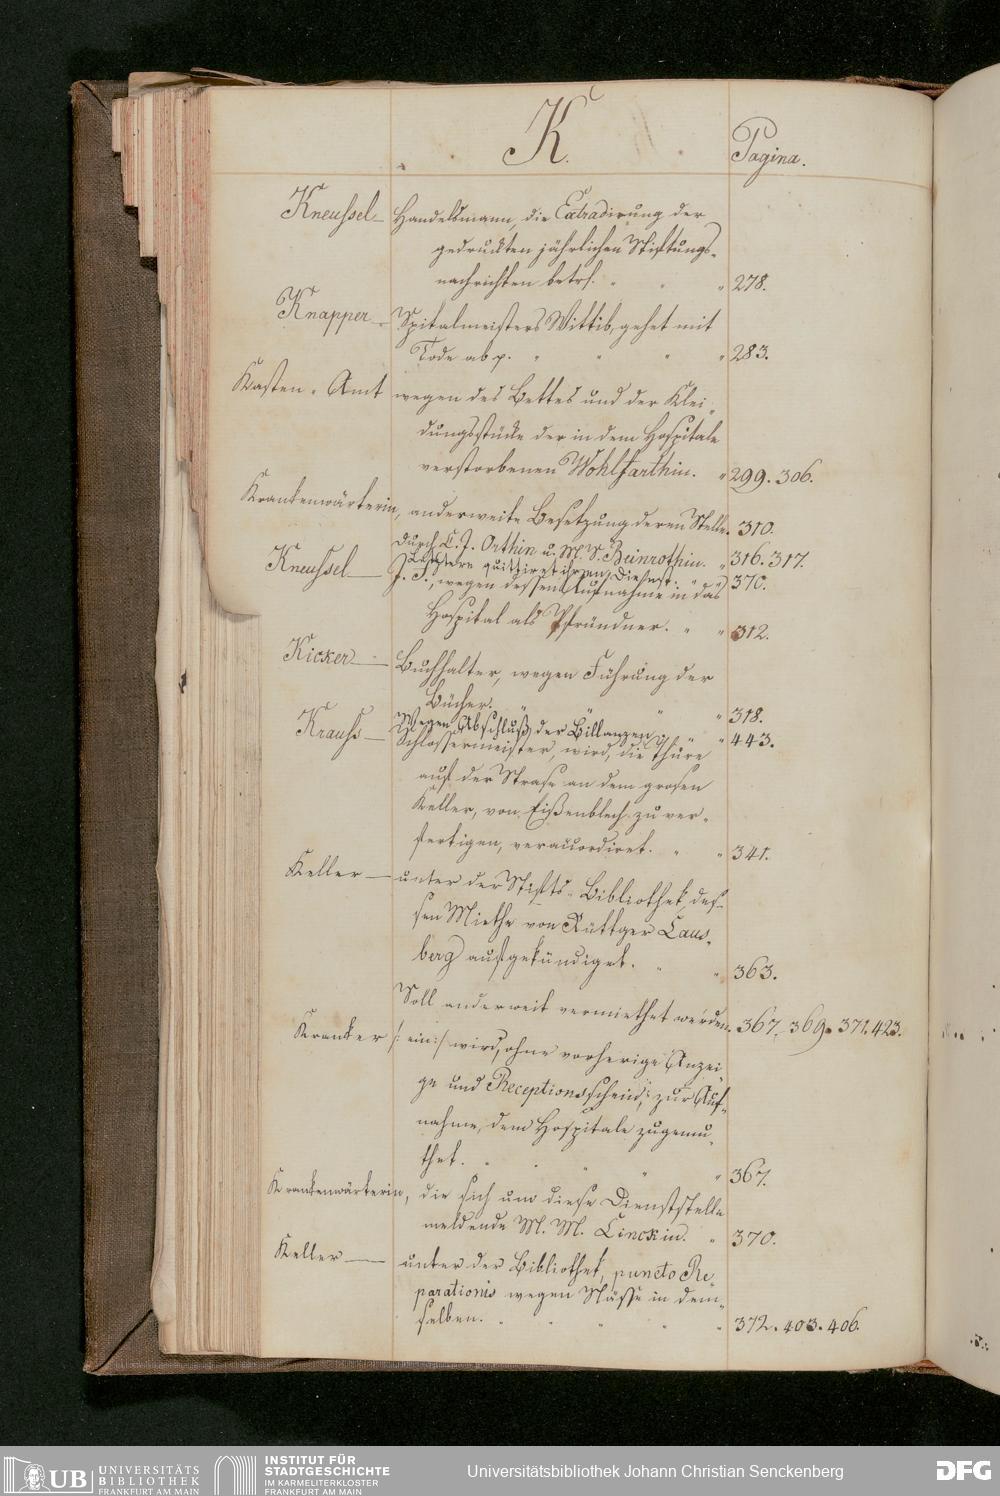 K.
Pagina.
Kneussel— Handelsmann, die Extradirung der
gedruckten jährlichen Stiftungs-
nachrichten betrf. 278.
Knapper— Spitalmeisters Wittib, gehet mit
Tode ab p. 283.
Kasten-Amt wegen des Bettes und der Klei-
dungsstücke der in dem Hospitale
verstorbenen Wohlfarthin. 299. 306.
Krankenwärterin, anderweite Besetzung deren Stelle. 310.
durch C. J. Orthin u. M. V. Beinrothin. 316. 317.
Letztere quittiret ihren Dienst. 370.
Kneussel— J. F., wegen dessen Aufnahme in das
Hospital als Pfründner. 312.
Kicker— Buchhalter, wegen Führung der
Bücher. 318.
Wegen Abschluß der Billanzen 443.
Krauss— Schlossermeister, wird, die Thüre
auf der Strase an dem grosen
Keller, von Eißenblech zu ver-
fertigen, verauordiret. 341.
Keller— unter der Stifts-Bibliothek, des-
sen Miethe von Rüttger Caus-
berg aufgekündiget. 363.
Soll anderweit vermiethet werden. 367. 369. 371. 423.
Krancker /: ein :/ wird, ohne vorherige Anzei-
ge und Receptionsschein, zur Auf-
nahme, dem Hospitale zugemu-
thet. 367.
Krankenwärterin, die sich um diese Dienststelle
meldende M. M. Linckin. 370.
Keller— unter der Bibliothek, puncto Re-
parationis wegen Nässe in dem-
selben. 372. 403. 406.
UB UNIVERSITÄTS
BIBLIOTHEK
FRANKFURT AM MAIN
INSTITUT FÜR
STADTGESCHICHTE
IM KARMELITERKLOSTER
FRANKFURT AM MAIN
Universitätsbibliothek Johann Christian Senckenberg
DFG